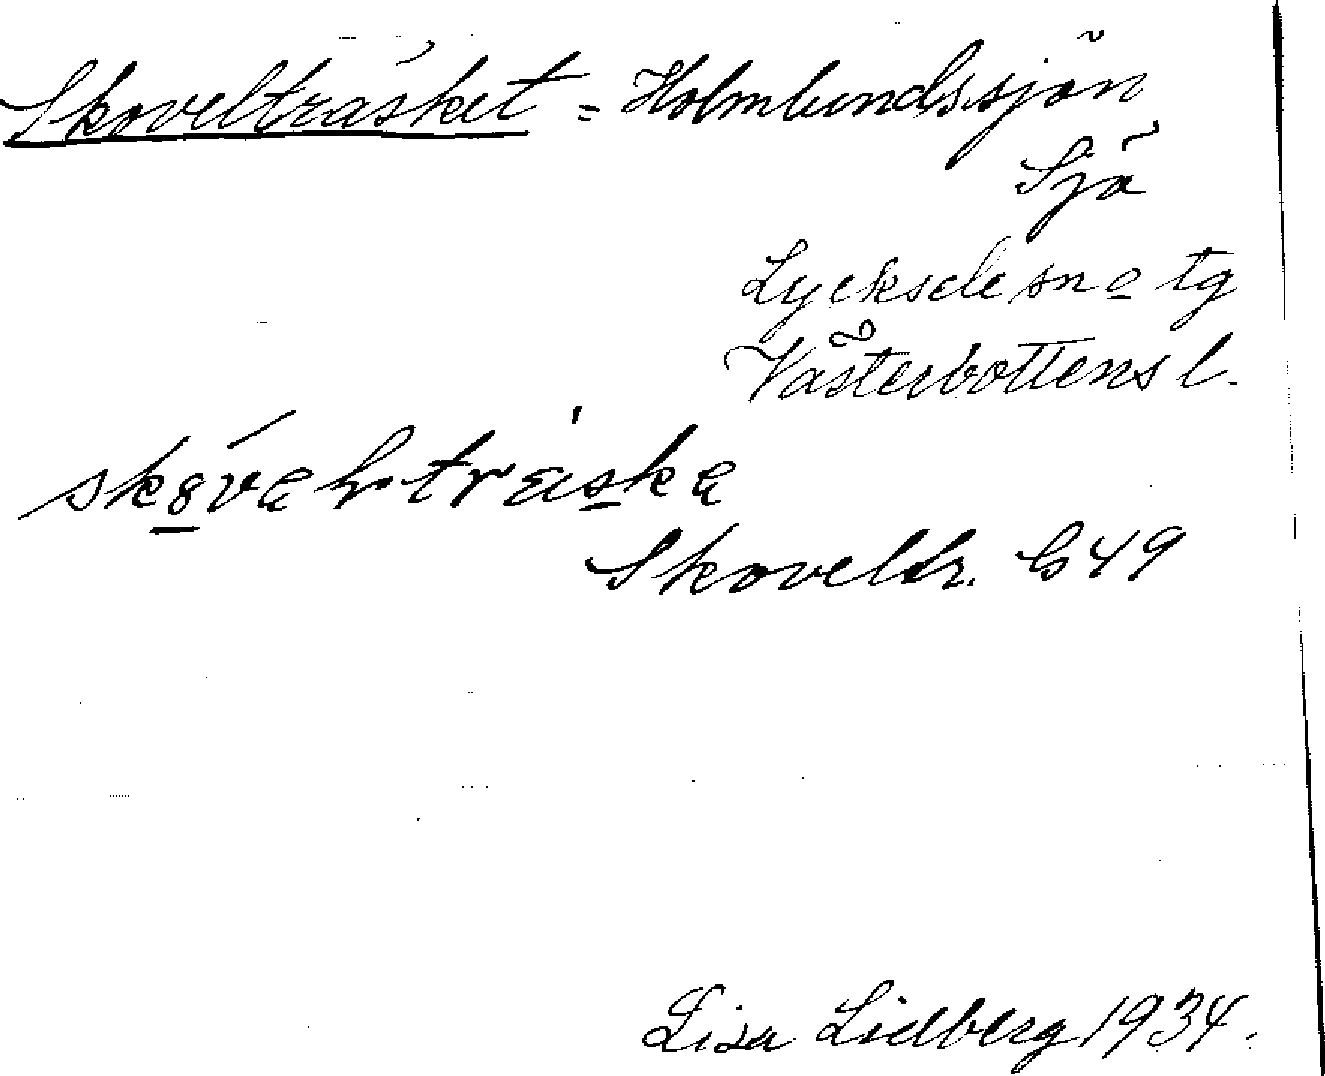 Skovelträsket = Holmlundssjön
Sjö
Lycksele sn o tg
Västerbottens l.
Skoveltr. G49
Lisa Lidberg 1934.